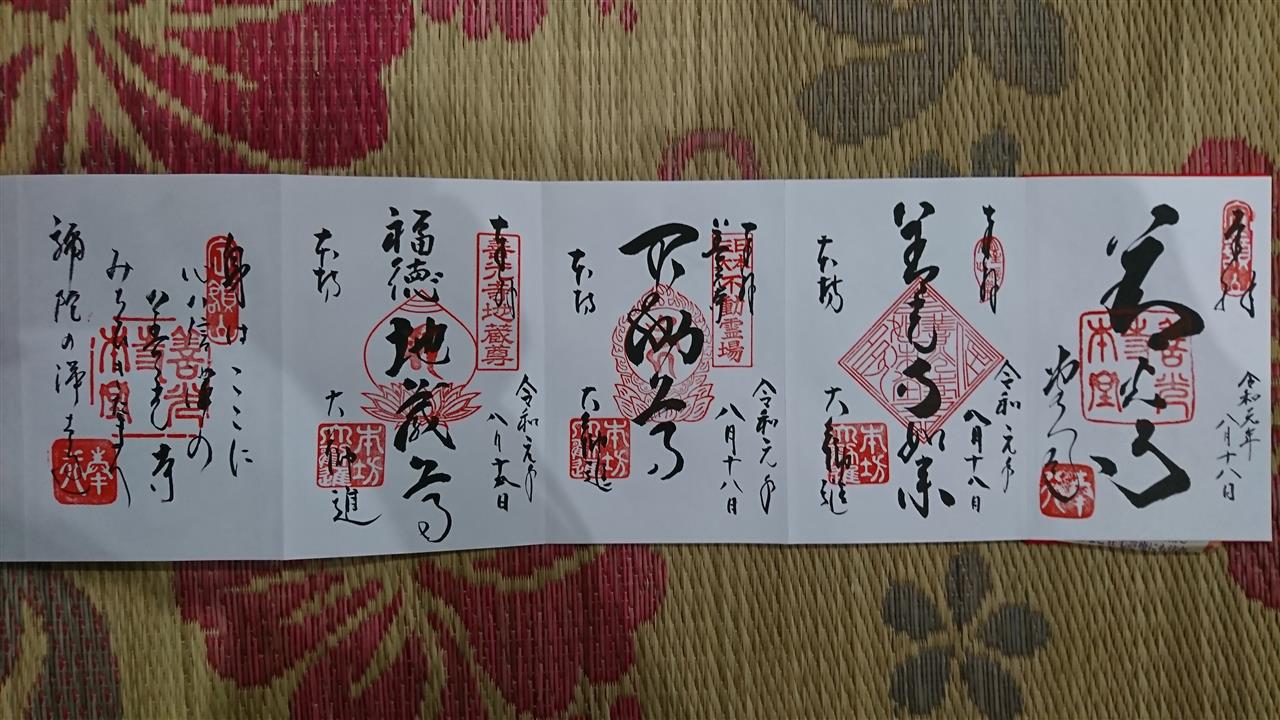 奉拝
令和元年
八月十八日
善光寺
善光寺
本堂
奉拝
令和元年
八月十八日
善光寺如来
本坊
大勧進
本坊
大勧進
奉拝
善光寺
日本
不動霊場
令和元年
八月十八日
不動尊
本坊
大勧進
本坊
大勧進
奉拝
令和元年
福徳地蔵尊
本坊
大勧進
本坊
大勧進
身はここに
心は信濃の
善光寺
みちびきたまへ
弥陀の浄土へ
定額山
善光寺
本堂